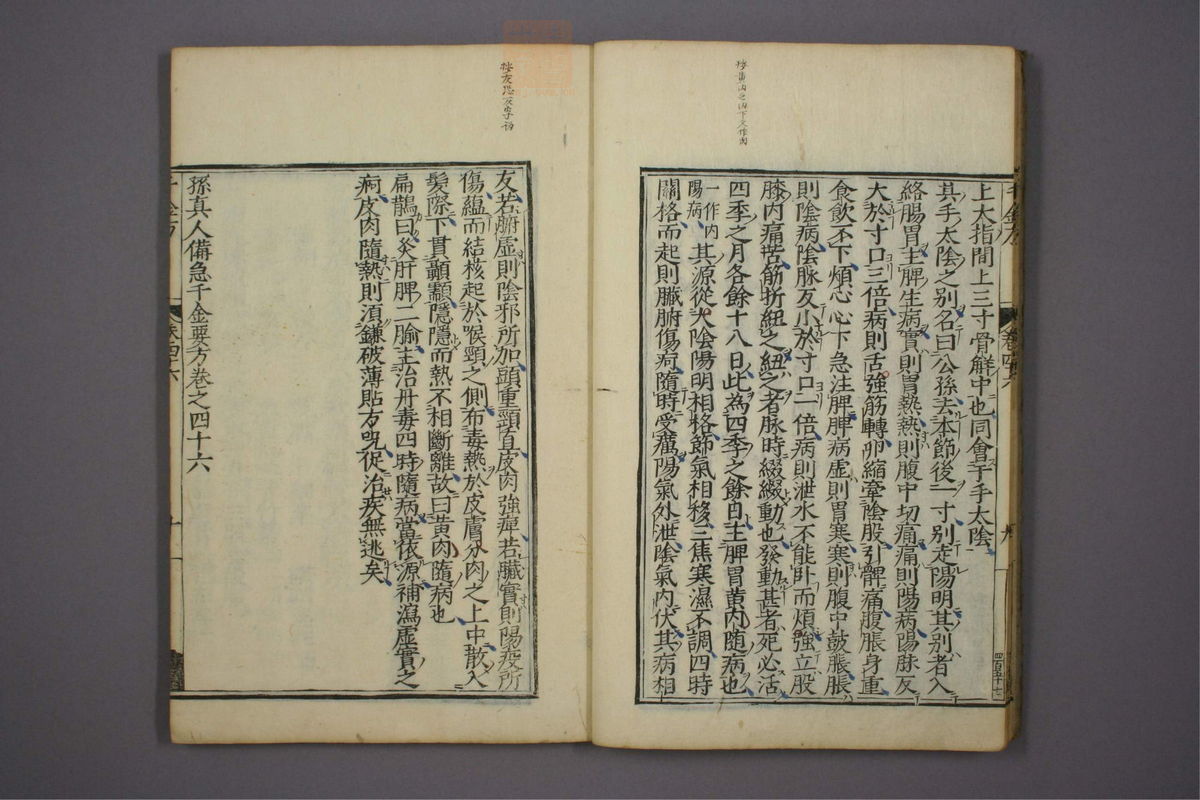 按黄内之内下文作肉
上大指間上三寸骨解中也同會于手太陰
其手太陰之別名曰公孫去本節後一寸別走陽明其別者入
絡腸胃主脾生病實則胃熱熱則腹中切痛痛則陽病陽脉反
大於寸口三倍病則舌強筋轉卵縮牽陰股引髀痛腹脹身重
食飲不下煩心心下急注脾脾病虛則胃寒寒則腹中鼓脹脹
則陰病陰脉反小於寸口一倍病則泄水不能卧而煩強立股
膝内痛苦筋折紐之紐之者脉時綴綴動也發動甚者死必活
四季之月各餘十八日此為四季之餘日主脾胃黄内随病也
一作内
陽病
其源從太陰陽明相格節氣相移三焦寒濕不調四時
關格而起則臟腑傷疴隨時受癘陽氣外泄陰氣内伏其病相
卷四十六
九
四百五十七
按友恐反字訛
友若腑虛則陰邪所加頭重頸直皮肉強痺若臟實則陽疫所
傷蘊而結核起於喉頸之側布毒熱於皮膚分肉之上中散入
髮際下貫顳顬隱隱而熱不相斷離故曰黄肉隨病也
扁鵲曰灸肝脾二腧主治丹毒四時隨病當依源補瀉虛實之
疴皮肉隨熱則須鎌破薄貼方呪促治疾無逃矣
孫真人備急千金要方卷之四十六